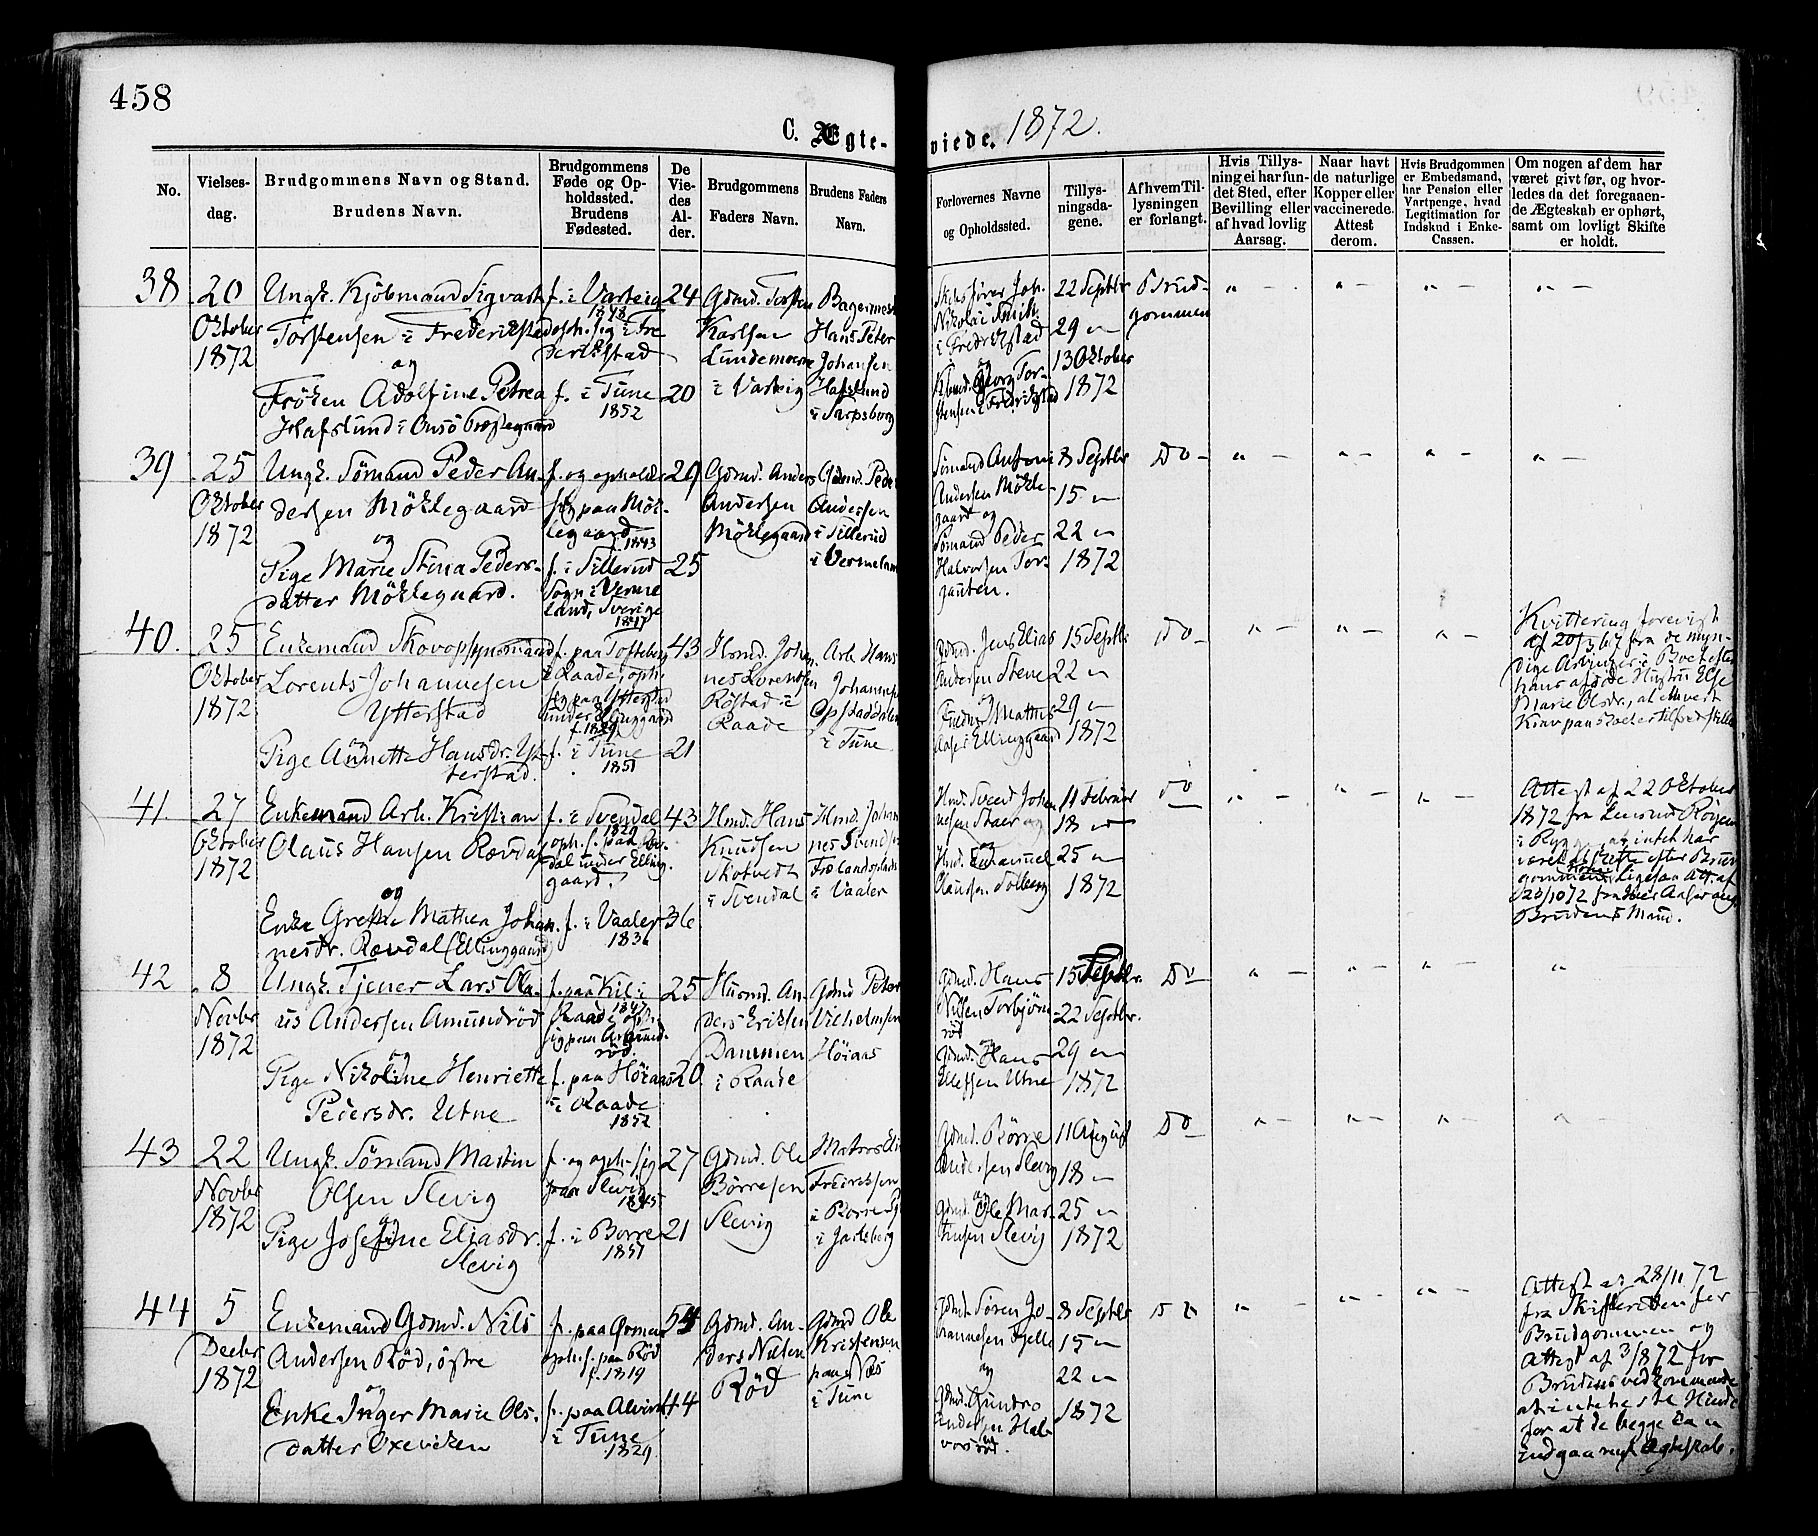 458
C. Ægte-viede. 1872.
No.
Vielses-
dag.
Brudgommens Navn og Stand.
Brudens Navn.
Brudgommens
Føde og Op-
holdssted.
Brudens
Fødested.
De
Vie-
des
Al-
der.
Brudgommens
Faders Navn.
Brudens Faders
Navn.
Forlovernes Navne
og Opholdssted.
Tillys-
ningsda-
gene.
Af hvem Til-
lysningen
er forlangt.
Hvis Tillys-
ning ei har fun-
det Sted, efter
Bevilling eller
af hvad lovlig
Aarsag.
Naar havt
de naturlige
Kopper eller
vaccinerede.
Attest
derom.
Hvis Brudgommen
er Embedsmand,
har Pension eller
Vartpenge, hvad
Legitimation for
Indskud i Enke-
Cassen.
Om nogen af dem har
været givt før, og hvor-
ledes da det foregaaen-
de Ægteskab er ophørt,
samt om lovligt Skifte
er holdt.
38
20
Oktober
1872
Ungk. Kjøbmand Sigvart
Torstensen i Frederikstad
og
Frøken Adolfine Petrea
Hafslund i Onsø
f. i Varteig
1848
oph. sig i Fre
derikstad
f. i Tune
1852
24
20
Gdmd. Torsten
Karlsen
Lundemoerne
i Varteig
Bagermest
Hans Peter
Johansen
Hafslund
i Sarpsborg
Nikolai
i Fredrikstad
og
Kbmd. Georg Tor-
stensen i Fredrikstad
22 Septbr
29 "
13 Oktober
1872
Brud-
gommen
" -
" -
" -
" -
39
25
Oktober
1872
Ungk. Sømand Peder An-
dersen Møklegaard
og
Pige Marie Stina Peders-
datter Møklegaard.
f. og opholder
sig paa Møk-
legaard
f. 1843
f. i Sillerud
Sogn i Verme
land, Sverige
1847
29
25
Gdmd. Anders
Andersen
Møklegaard
Gdmd. Peder
Andersen
i Sillerud
i Vermeland
Sømand Anton
Andersen Møkle-
gaard og
Sømand Peder
Halvorsen Tor-
gauten.
8 Septbr
15 "
22 "
1872
Do -
" -
" -
" -
" -
40.
25
Oktober
1872
Enkemand Skovopsynsmand
Lorents Johannesen
Ytterstad
og
Pige Annette Hansdr. Yt-
terstad.
f. paa Tofteberg
i Raade, oph.
sig paa Ytterst
under Elinggaard
f. 1829
f. i Tune
1851
43
21
Hsmd. Johan
nes Lorentsen
Røstad i
Raade
Arb. Hans
Johannes
Opstaddalen
i Tune
Gdmd. Jens Elias
Andersen Stene
og
Mathis
Aaser Ellinggaard
15 Septb:
22 "
29 "
1872
Do -
" -
" -
" -
Kvittering forevist
af 20/3 67 fra de myn-
dige Arvinger i Boet efter
hans afdøde Hustru Else
Marie Olsdr., at ethvert
Krav paa Boet er tilfredsstillet
41.
27
Oktober
1872
Enkemand Arb. Kristian
Olaus Hansen Rævdal
og
Enke Grethe Mathea Johan
nesdr. Rævdal (Ellinggaard)
f. i Svendal
1829
oph. s. paa Ræv-
dal under Elling
gaard.
f. i Vaaler
1836
43
36
Hmd. Hans
Knudsen
Skotvedt
i Svendal
Hmd. Johan
nes Svendsen
Frolandsplads
i Vaaler
Hmd. Svend Johan
nesen Stær
og
Hmd. Emanuel
Olaussen Solberg
11 Februar
18 "
25 "
1872
Do
" -
" -
" -
Attest af 22 Oktober
1872 fra Lensmd Röysen
i Rygge, at intet har
været at skifte efter Brud
gommens Kone. Ligesaa Att. af
20/10 72 fra Aaser ang
Brudens Mand.
42
8
Novbr
1872
Ungk. Tjener Lars Ola-
us Andersen Amundrød
og
Pige Nikoline Henriette
Pedersdr. Utne
f. paa Kil i
Raade 1847 oph.
sig paa Amund-
rød.
f. paa Höiaas
i Raade
1852
25
20
Husmd. An-
ders Eriksen
Dammen
i Raade
Gdmd Peter
Vilhelmsen
Höiaas
Gdmd. Hans
Nilsen Torbjörn-
rød
og
Gdmd. Hans
Ellefsen Utne
15 Septbr.
22 Septbr.
29 "
1872
Do
" -
" -
" -
"
43
22
Novbr
1872
Ungk. Sømand Martin
Olsen Slevig
og
Pige Josefine Eliasdr.
Slevig
f. og oph. sig
paa Slevig
1845
f. i Borre
1851
27
21
Gdmd. Ole
Börresen
Slevig
Matros Eli
Fredriksen
i Borre P
i Jarlsberg
Gdmd. Börre
Andersen Slevig
og
Gdmd. Ole Mar-
tinsen Slevig
11 August
18 "
25 "
1872
Do
" -
" -
" -
" -
44
5
Decbr
1872
Enkemand Gdmd. Nils
Andersen Rød, østre
og
Enke Inger Marie Ols-
datter Oxeviken
f. paa
oph. s. paa Rød
f. 1819
f. paa Alvim
i Tune
1829
54
44
Gdmd. An-
ders Nilsen
Rød
Gdmd Ole
Kristensen
paa Næs
i Tune
Gdmd. Søren Jo-
hannesen Fjelle
og
Gdmd. Gundro
Andersen Hal-
vorsrød.
8 Septbr
15 "
22 "
1872
Do
" -
" -
" -
Attest af 28/11 72
fra Skifteretten for
Brudgommen og
Attest af 3/ 1872 for
Brudens vedkommende
at intet er til Hinder
for at de begge kan
indgaa nyt Ægteskab.